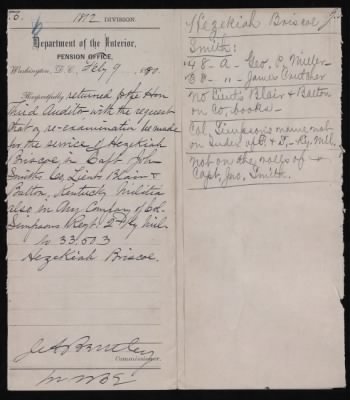 1812 DIVISION.
Department of the Interior,
PENSION OFFICE,
Washington, D.C., Feb 9, 1880.
Respectfully returned to the Hon
Third Auditor with the request
that a re-examination be made
for the service of Hezekiah
Briscoe, in Capt John
Smiths Co, Lieuts Blair &
Batton, Kentucky Militia
also in Any Company of Col
Simpsons Regt. 2d Ky Mil
33.503
Hezekiah Briscoe.
J A Bentley
Commissioner.
Hezekiah Briscoe
Smith:
48 - A - Geo. P. Miller
- " - James Crutcher
No Lieuts Blair & Batton
on Co, books -
Col, Simpson's name not
on index of & Ky. Mil.
not on the rolls of
Capt, Jno. Smith.